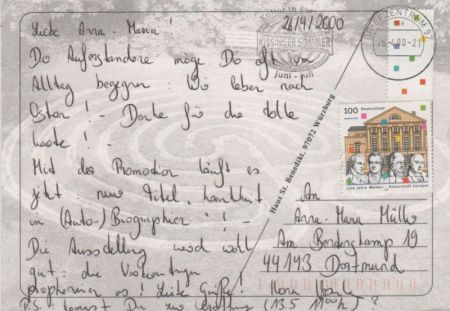 Liebe Anna-Maria!
26/4/2000
Der Auferstandene möge Dir oft im
Alltag begegnen! Wo leben nach
Ostern! - Danke für die tolle
Karte! -
Mit der Promotion läuft es
jetzt: neuer Titel, Krankheit
in (Auto-)Biographien!! -
Die Ausstellung wird wohl
gut: die
es! Liebe Grüße!
P.S.: kommst Du zur Eröffnung (13.5 11ooh)?
KISSINGER SOMMER
Juni - Juli
BRIEFZENTRUM 97
26.4.00-21
Haus St. Benedikt, 97072 Würzburg
100 Deutschland
1100 Jahre Weimar - Kulturstadt Europas
An
Anna-Maria Müller
Am
44143 Dortmund